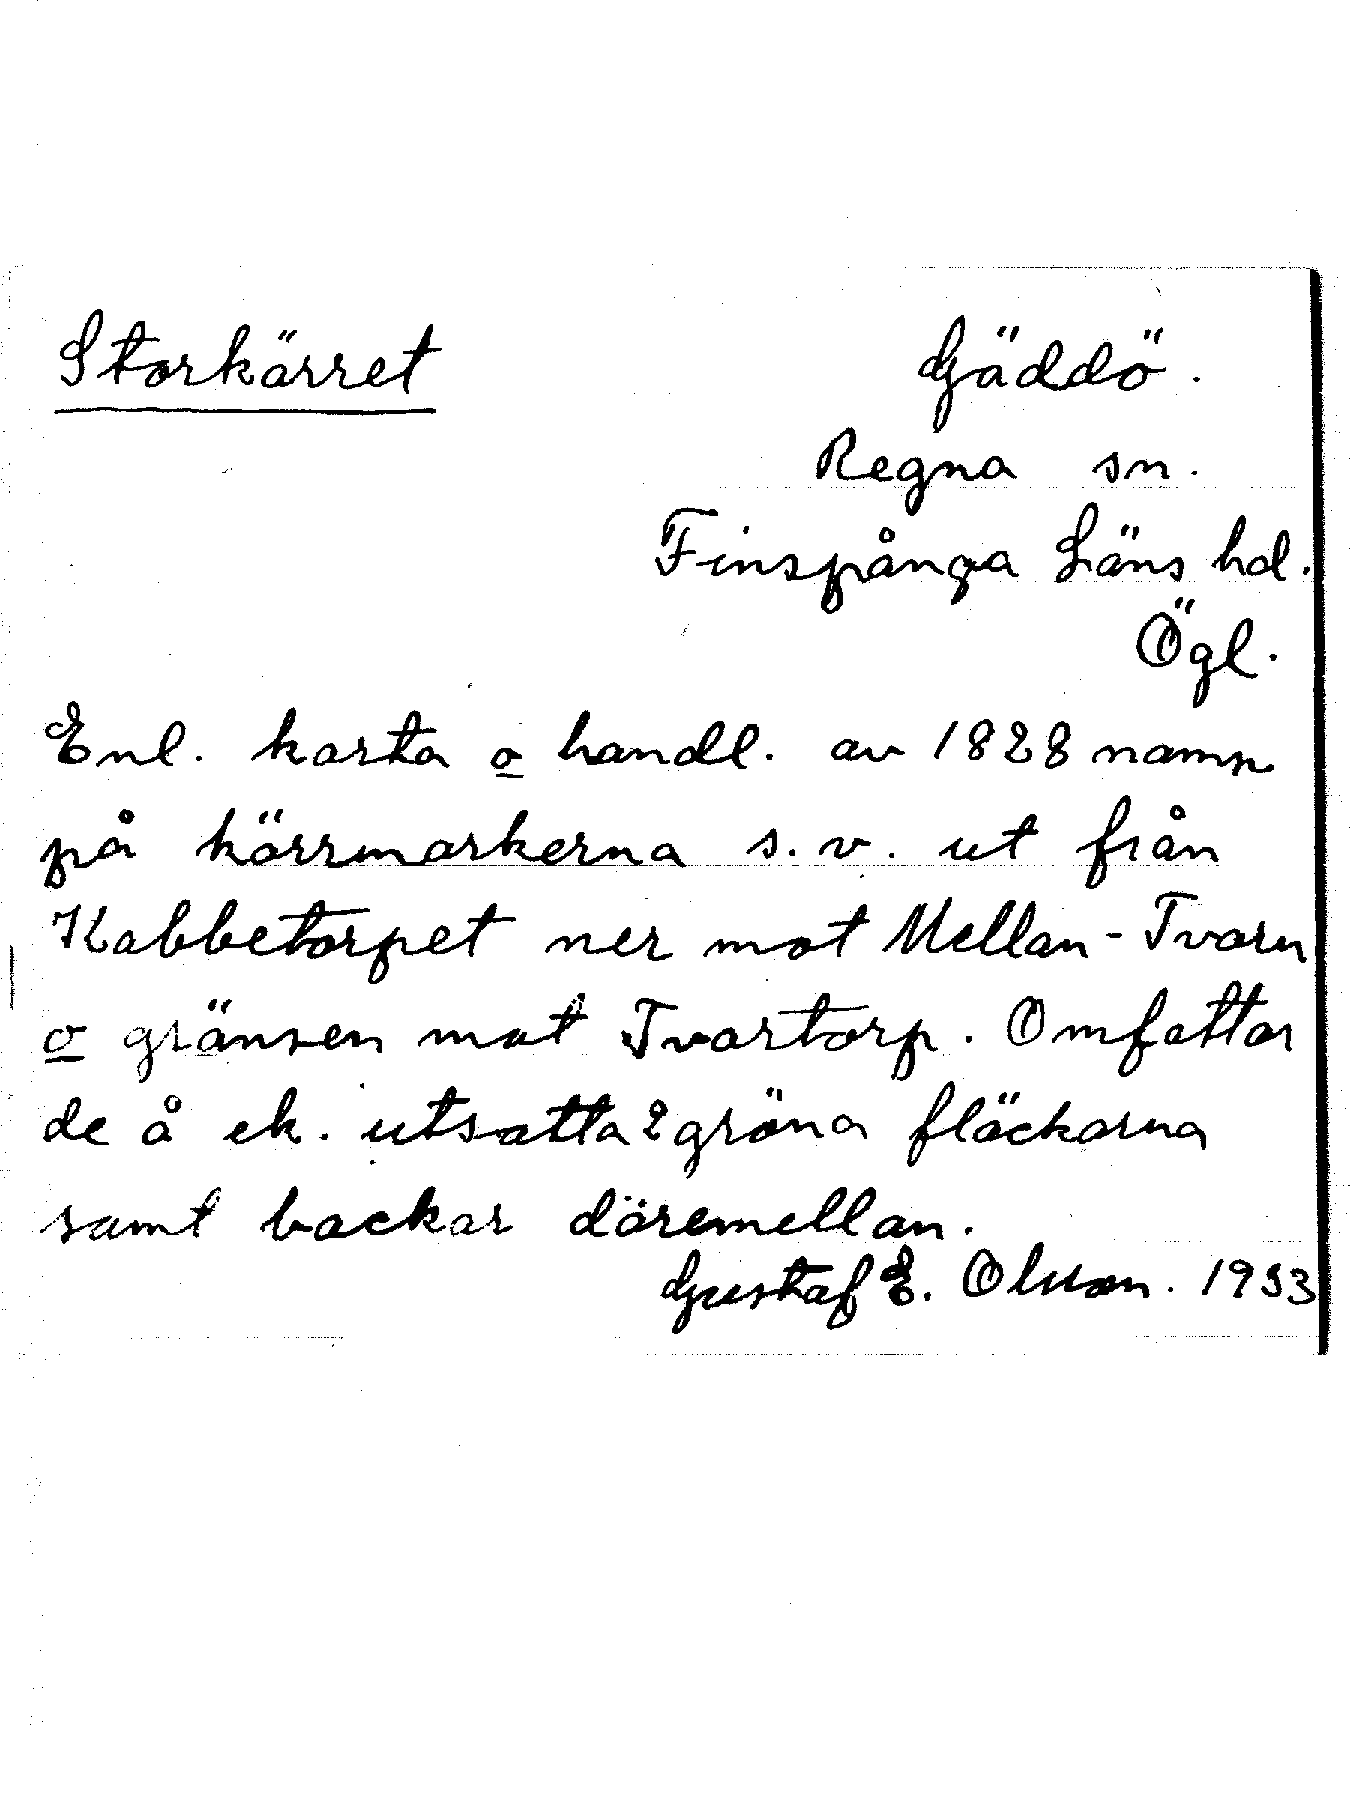 Storkärret
Gäddö.
Regna sn.
Finspånga Läns hd.
Ögl.
Enl. karta o handl. av 1828 namn
på kärrmarkerna s.v. ut från
Kabbetorpet ner mot Mellan-Tvarn
o gränsen mot Tvartorp. Omfattar
de å ek. utsatta 2 gröna fläckarna
samt backar däremellan.
Gustaf E. Olsson. 1933